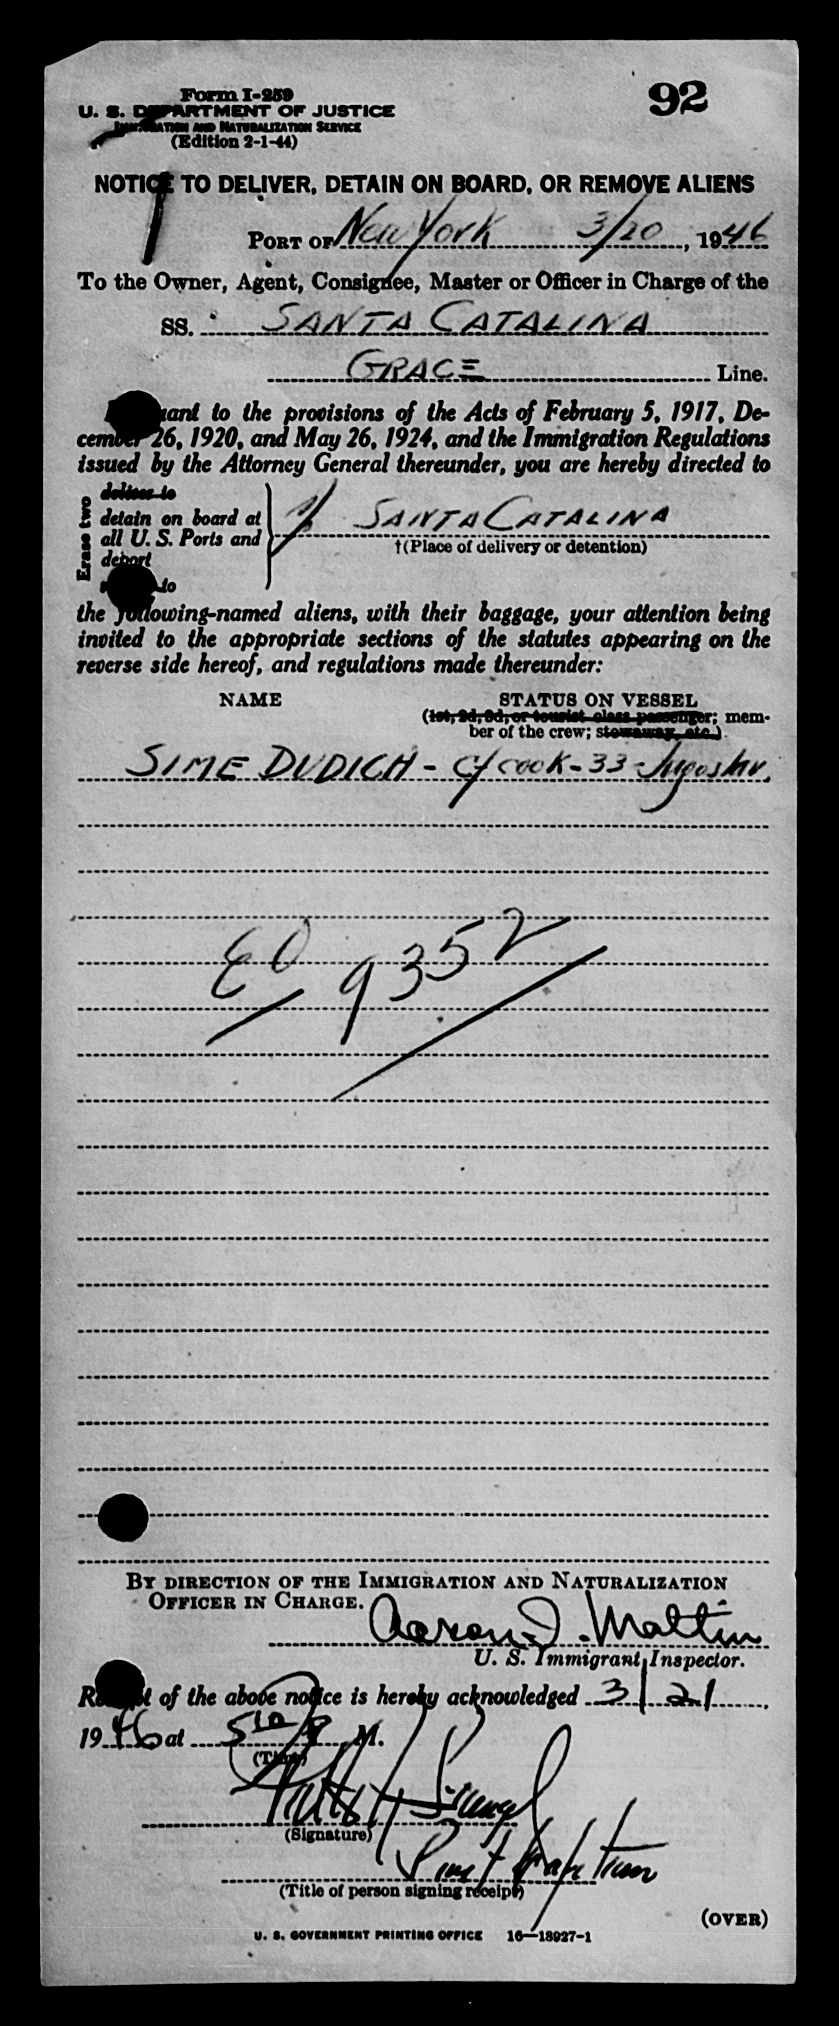 Form I-259
92
U. S. DEPARTMENT OF JUSTICE
IMMIGRATION AND NATURALIZATION SERVICE
(Edition 2-1-44)
NOTICE TO DELIVER, DETAIN ON BOARD, OR REMOVE ALIENS
PORT OF New York 3/20, 1946
To the Owner, Agent, Consignee, Master or Officer in Charge of the
SS. SANTA CATALINA
GRACE Line.
Pursuant to the provisions of the Acts of February 5, 1917, De-
cember 26, 1920, and May 26, 1924, and the Immigration Regulations
issued by the Attorney General thereunder, you are hereby directed to
Erase two
deliver to
detain on board at
all U. S. Ports and
deport
to
SANTA CATALINA
†(Place of delivery or detention)
the following-named aliens, with their baggage, your attention being
invited to the appropriate sections of the statutes appearing on the
reverse side hereof, and regulations made thereunder:
NAME
STATUS ON VESSEL
(1st, 2d, 3d, or tourist class passenger; mem-
ber of the crew; stowaway, etc.)
SIME DUDICH - cook - 33 - Jugoslav.
EO 9352
BY DIRECTION OF THE IMMIGRATION AND NATURALIZATION
OFFICER IN CHARGE.
Aaron I. Maltin
U. S. Immigrant Inspector.
Receipt of the above notice is hereby acknowledged 3/21,
1946 at 5 10 P M.
(Time)
(Signature)
(Title of person signing receipt)
(OVER)
U. S. GOVERNMENT PRINTING OFFICE 16—18927-1